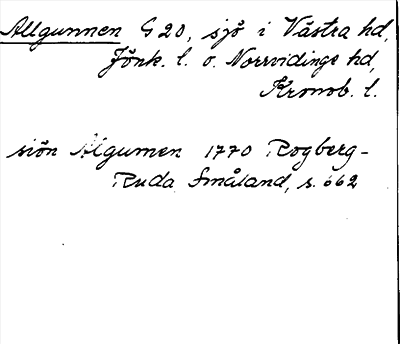 Allgunnen G 20, sjö i Västra hd,
Jönk. l. o. Norrvidinge hd,
Kronob. l.
siön Algumen 1770 Rogberg-
Ruda Småland, s. 662